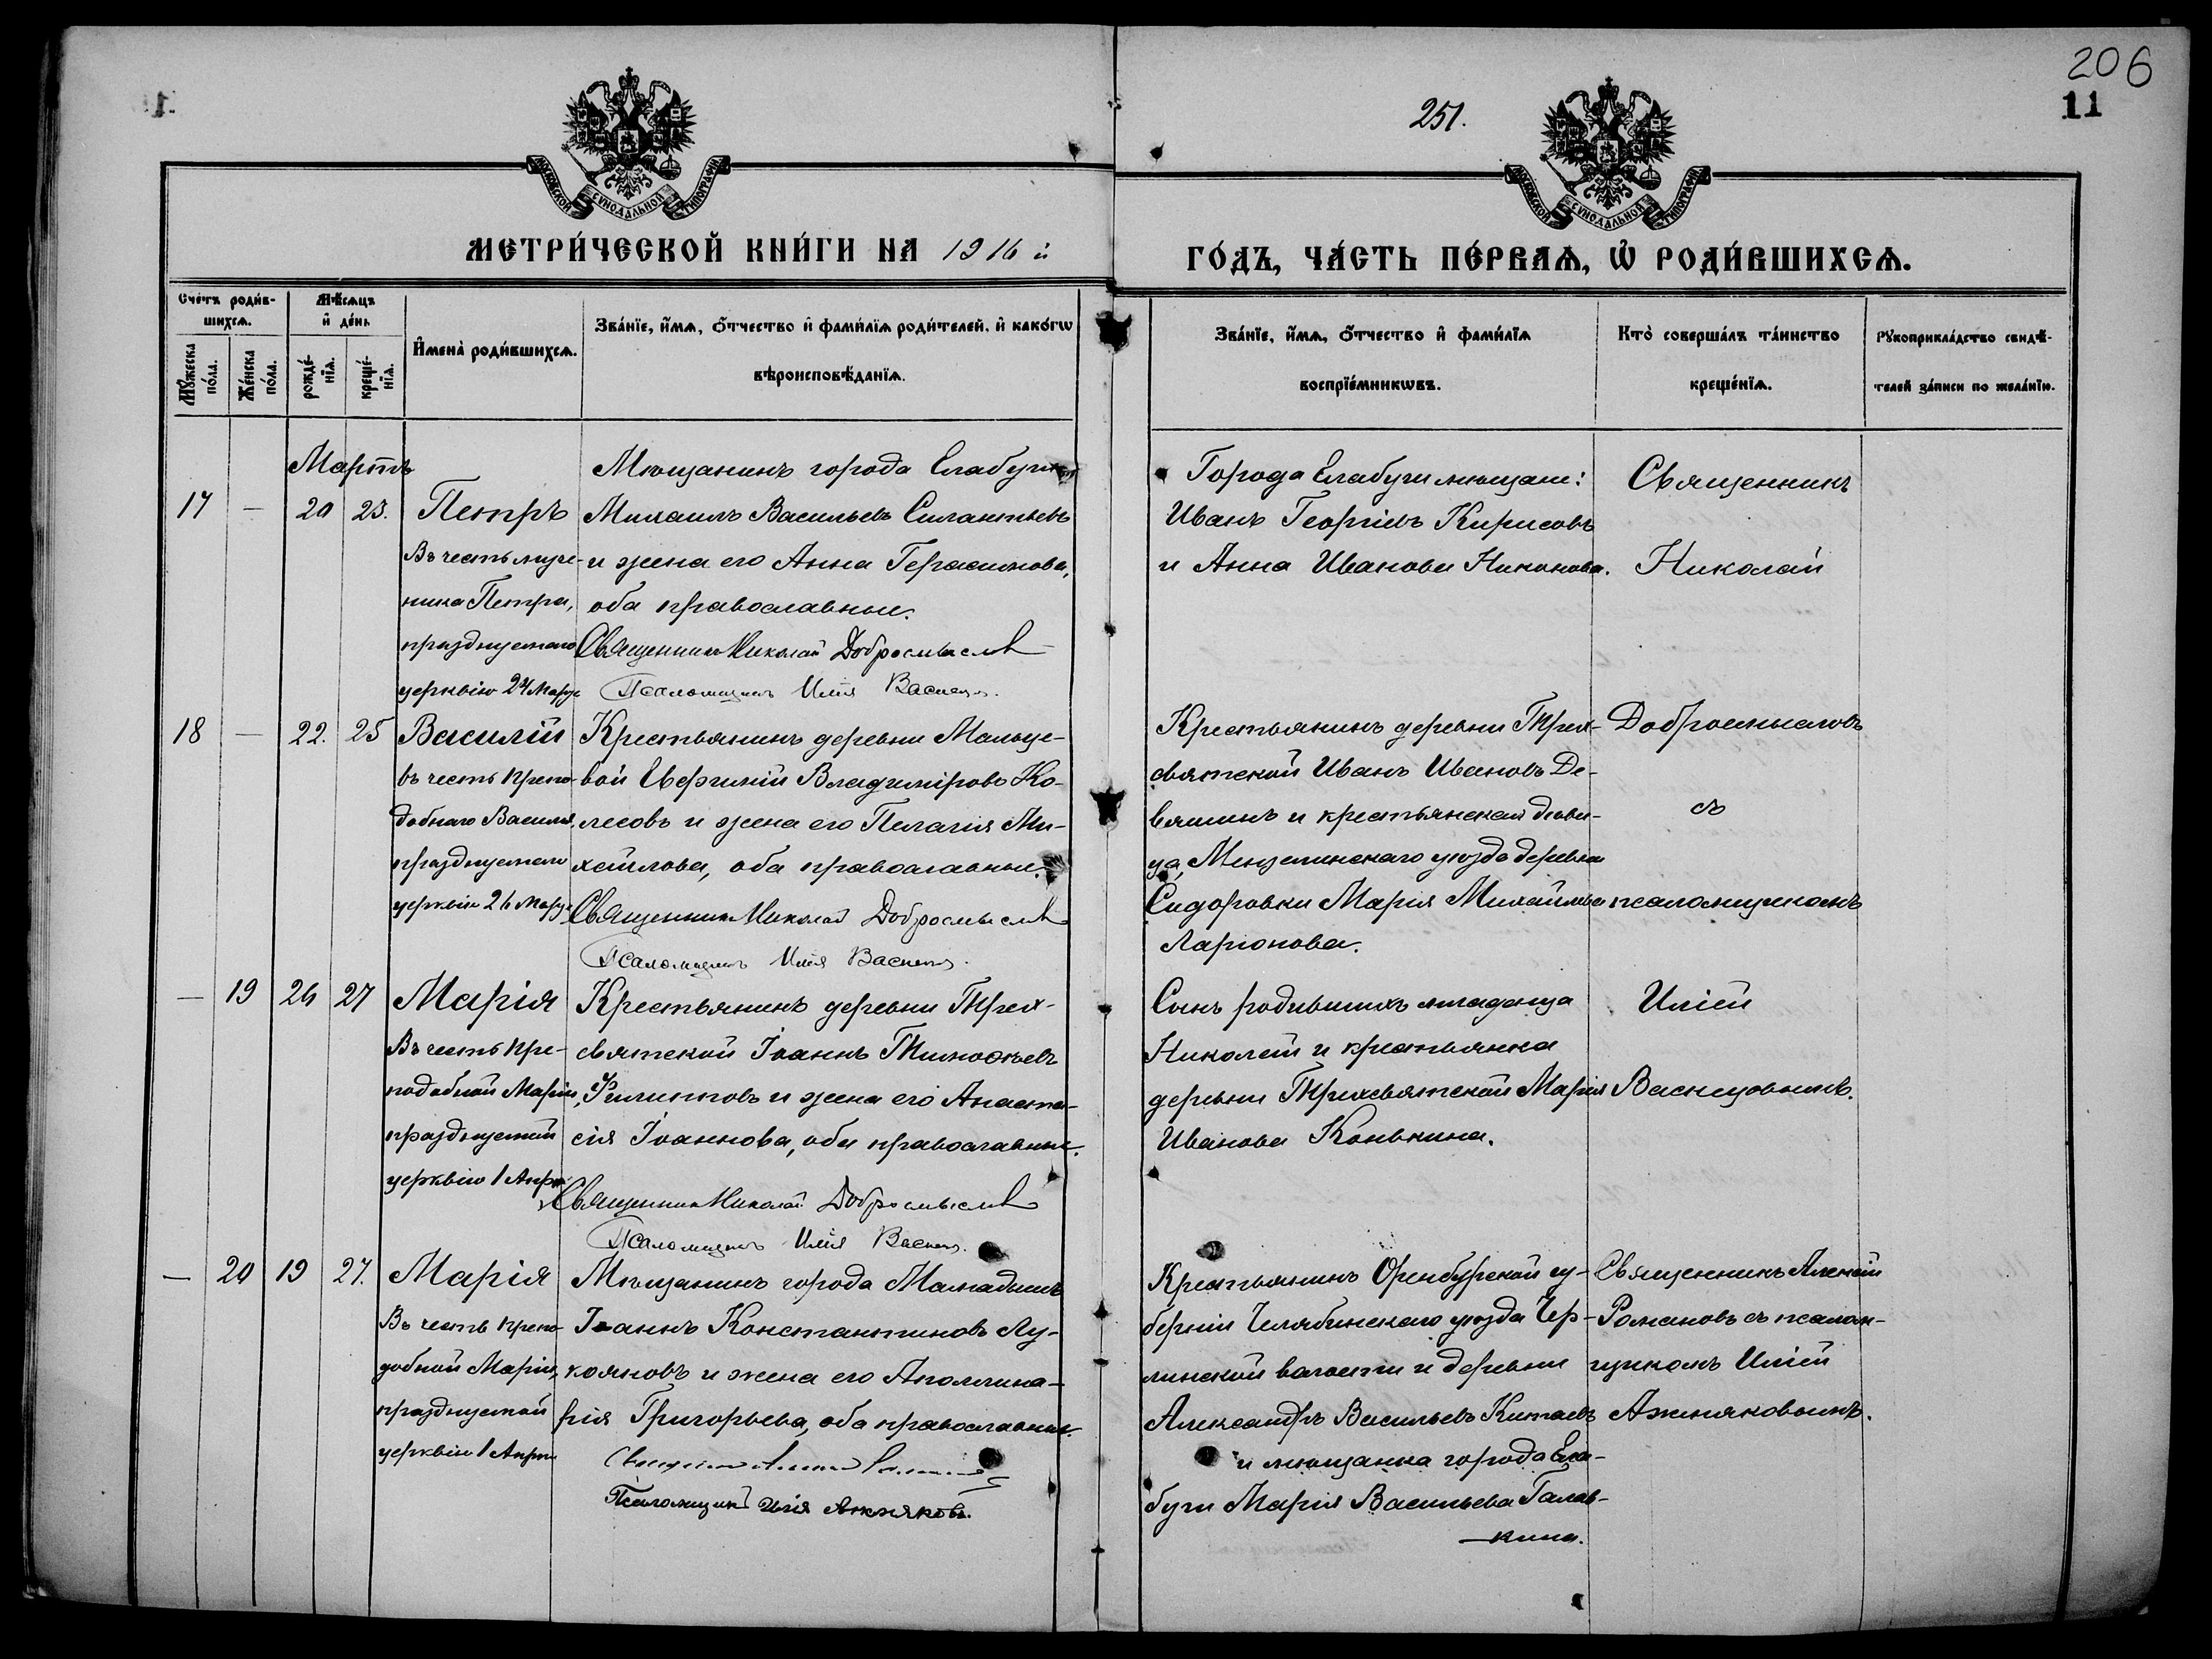 206
11
251.
МОСКОВСКОЙ СѴНОДАЛЬНОЙ ТИПОГРАФІИ
МОСКОВСКОЙ СѴНОДАЛЬНОЙ ТИПОГРАФІИ
МЕТРИ́ЧЕСКОЙ КНИ́ГИ НА 1916 й
ГО́ДЪ, ЧА́СТЬ ПЕ́РВАѦ, Ѡ҆ РОДИ́ВШИХСѦ.
Сче́тъ роди́в-
шихсѧ.
Мѣ́сѧцъ
и҆ де́нь
Мꙋ́жеска
по́ла.
Же́нска
по́ла.
рожде́-
нїѧ.
креще́-
нїѧ.
И҆мена̀ роди́вшихсѧ.
Зва́нїе, и҆́мѧ, ѻ҆́тчество и҆ фами́лїѧ роди́телей, и҆ како́гѡ
вѣроисповѣ́данїѧ.
Зва́нїе, и҆́мѧ, ѻ҆́тчество и҆ фами́лїѧ
воспрїе́мникѡвъ.
Кто̀ соверша́лъ та́инство
креще́нїѧ.
Рꙋкоприкла́дство свидѣ́-
телей за́писи по жела́нїю.
Мартъ
17 — 20 23.
Петръ
Въ честь муче-
ника Петра,
празднуемаго
церквію 24 Мар
Мѣщанинъ города Елабуги
Михаилъ Васильевъ Силантьевъ
и жена его Анна Герасимова,
оба православные.
Священникъ Николай Добросмыслов
Псаломщикъ Илія Васнец.
Города Елабуги мѣщане:
Иванъ Георгіевъ Кирисовъ
и Анна Иванова Никонова.
Священникъ
Николай
18 — 22. 25
Василій
въ честь препо-
добнаго Василія,
празднуемаго
церквію 26 Мар
Крестьянинъ деревни Мальце-
вой Евфимій Владиміровъ Ко-
лесовъ и жена его Пелагія Ми-
хайлова, оба православные.
Священникъ Николай Добросмыслов
Псаломщикъ Илія Васнец.
Крестьянинъ деревни Трех-
святской Иванъ Ивановъ Де-
вяшинъ и крестьянская дѣви-
ца, Мензелинскаго уѣзда деревни
Сидоровки Марія Михайлова
Ларіонова.
Добросмысловъ
съ
псаломщикомъ
— 19 26 27
Марія
Въ честь пре-
подобной Маріи,
празднуемой
церквію 1 Апр
Крестьянинъ деревни Трех-
святской Іоаннъ Тимоѳеевъ
Филипповъ и жена его Анаста-
сія Іоаннова, оба православные.
Священникъ Николай Добросмыслов
Псаломщикъ Илія Васнец.
Сынъ родившихъ младенца
Николай и крестьянка
деревни Трехсвятской Марія
Иванова Конькина.
Иліей
Васнецовымъ.
— 20 19 27.
Марія
Въ честь препо-
добной Маріи,
празднуемой
церквію 1 Апр
Мѣщанинъ города Мамадышъ
Іоаннъ Константиновъ Лу-
кояновъ и жена его Аполлина-
рія Григорьева, оба православные.
Псаломщикъ Илія Ажняковъ.
Крестьянинъ Оренбургской гу-
берніи Челябинскаго уѣзда Чер-
линской волости и деревни
Александръ Васильевъ Китаевъ
и мѣщанка города Ела-
буги Марія Васильева Галав-
кина.
Священникъ Алексій
Романовъ съ псалом-
щикомъ Иліей
Ажняковымъ.